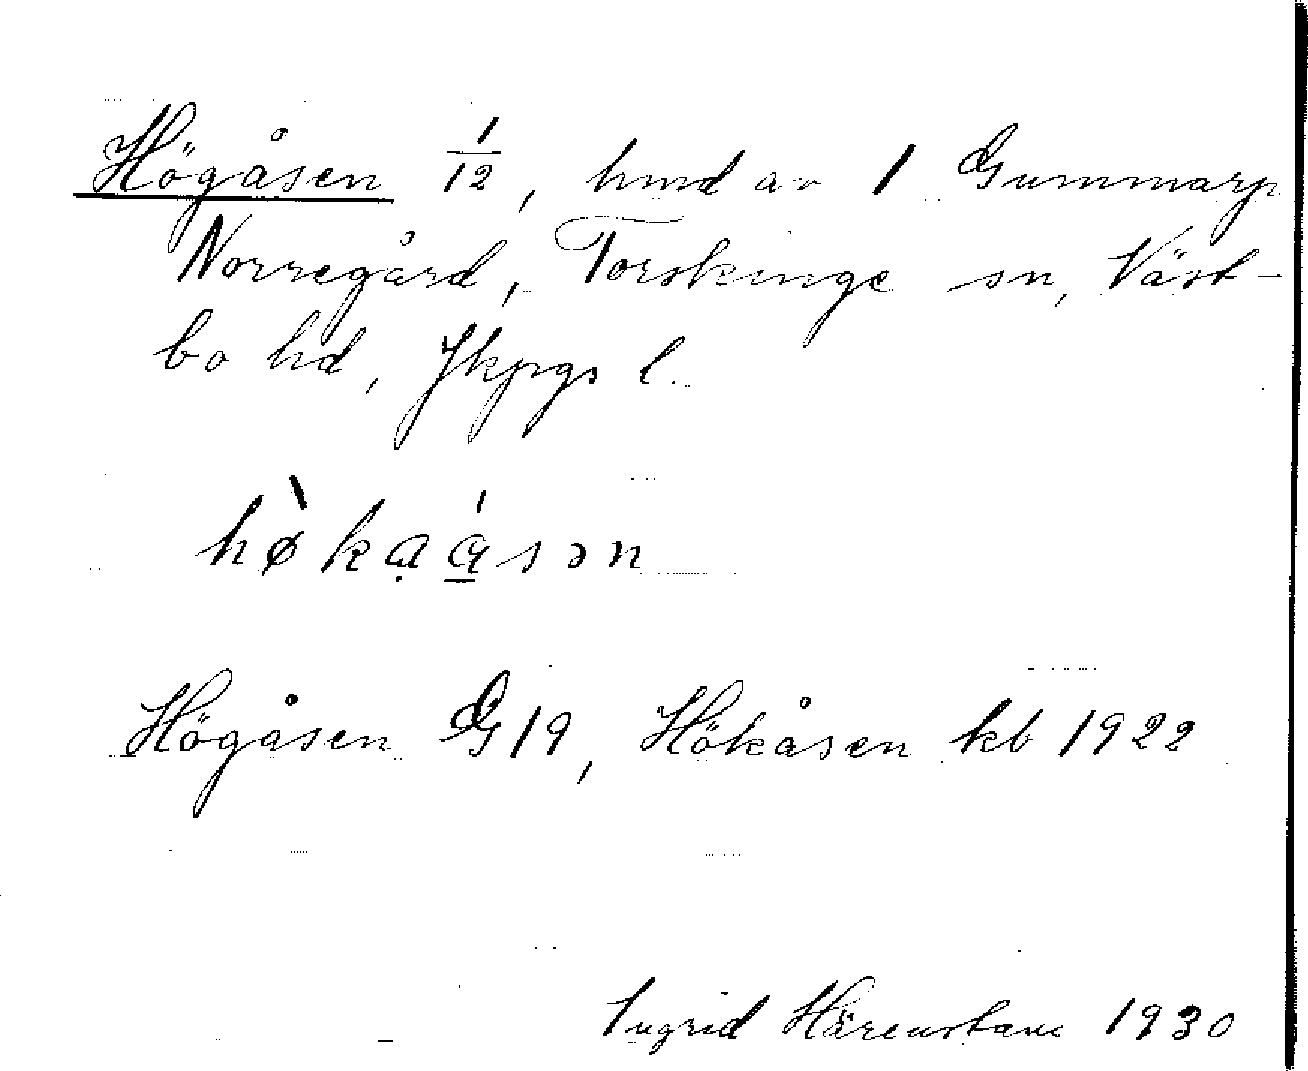 Högåsen 1/12, hmd av 1 Gummarp
Norregård, Torskinge sn, Väst-
bo hd, Jkpgs l.
hø̀kạá̱sən
Högåsen G19, Hökåsen kb 1922
Ingrid Härenstam 1930